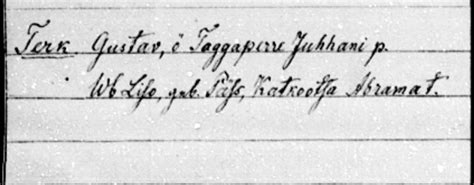 Terk Gustav, ö Taggaperre Juhhani p.
Wb Liso, geb. Päss, Katkootsa Abrama t.